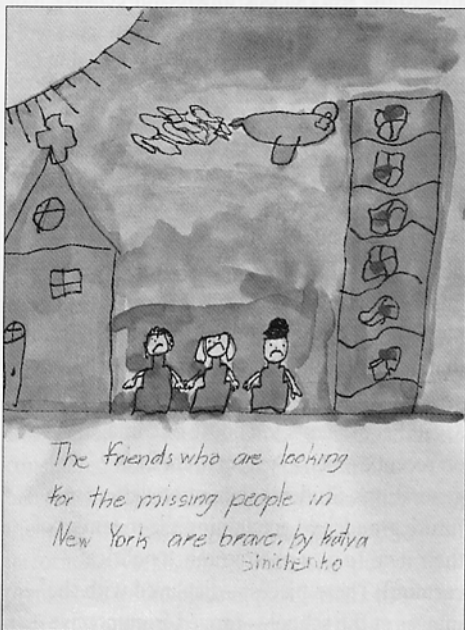 The friends who are looking
for the missing people in
New York are brave. by Katya
Sinichenko